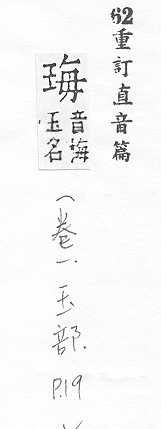 62重訂直音篇
㻙
音海
玉名
(卷一.玉部.
P.19